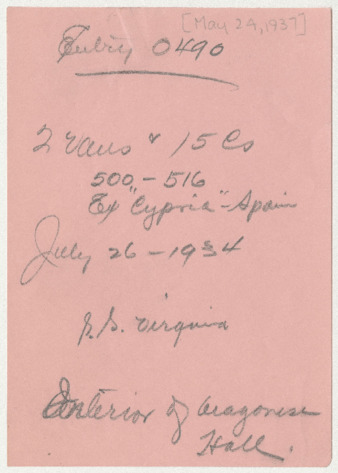 [May 29, 1937]
Entry 0490
2 vans & 15 Cs
500-516
Ex "Cypria" - Spain
July 26-1934
S.S. Virginia
Interior of Aragonese
Hall.